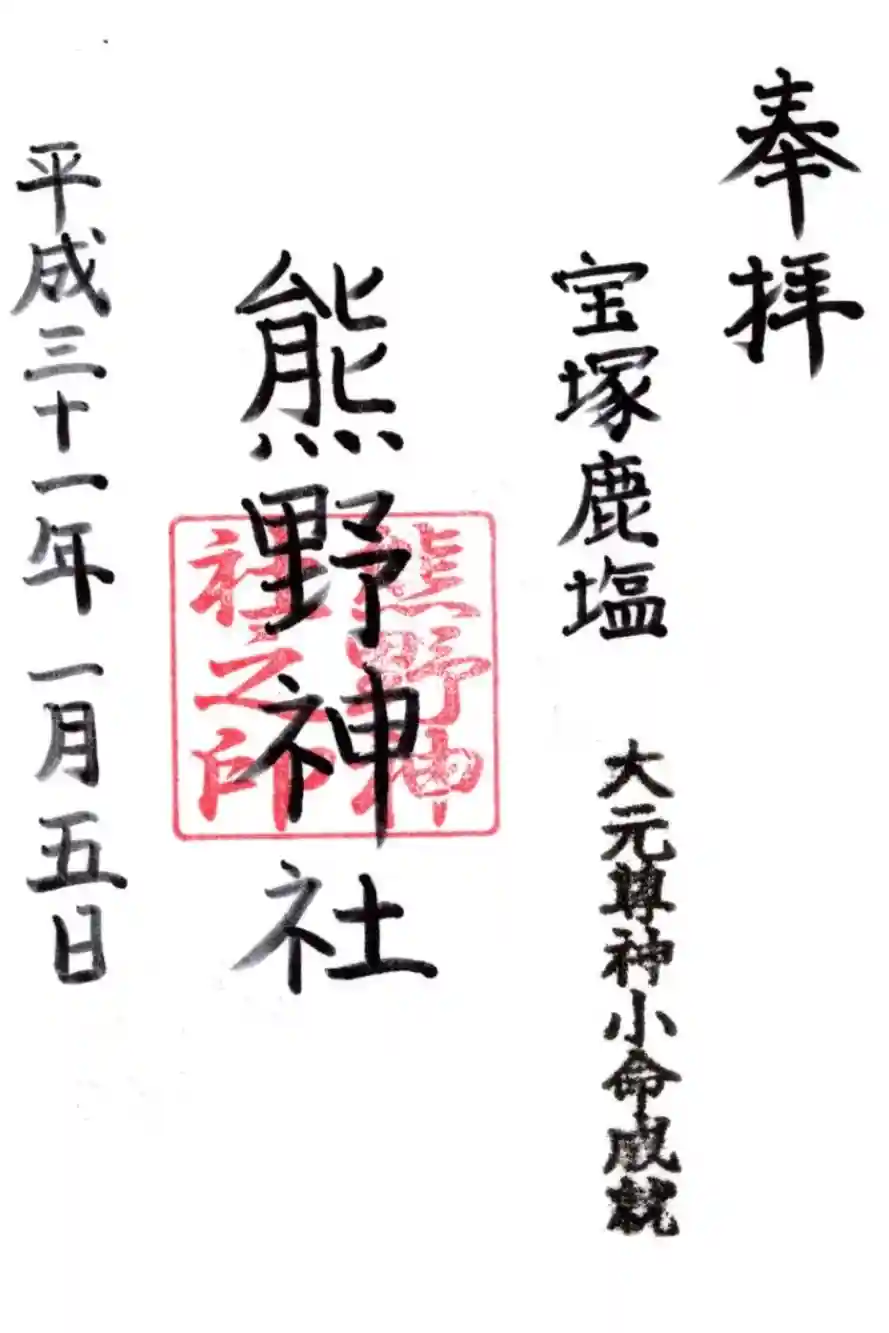 奉拝
宝塚鹿塩
大元尊神小命成就
熊野神社
熊野神
社之印
平成三十一年一月五日